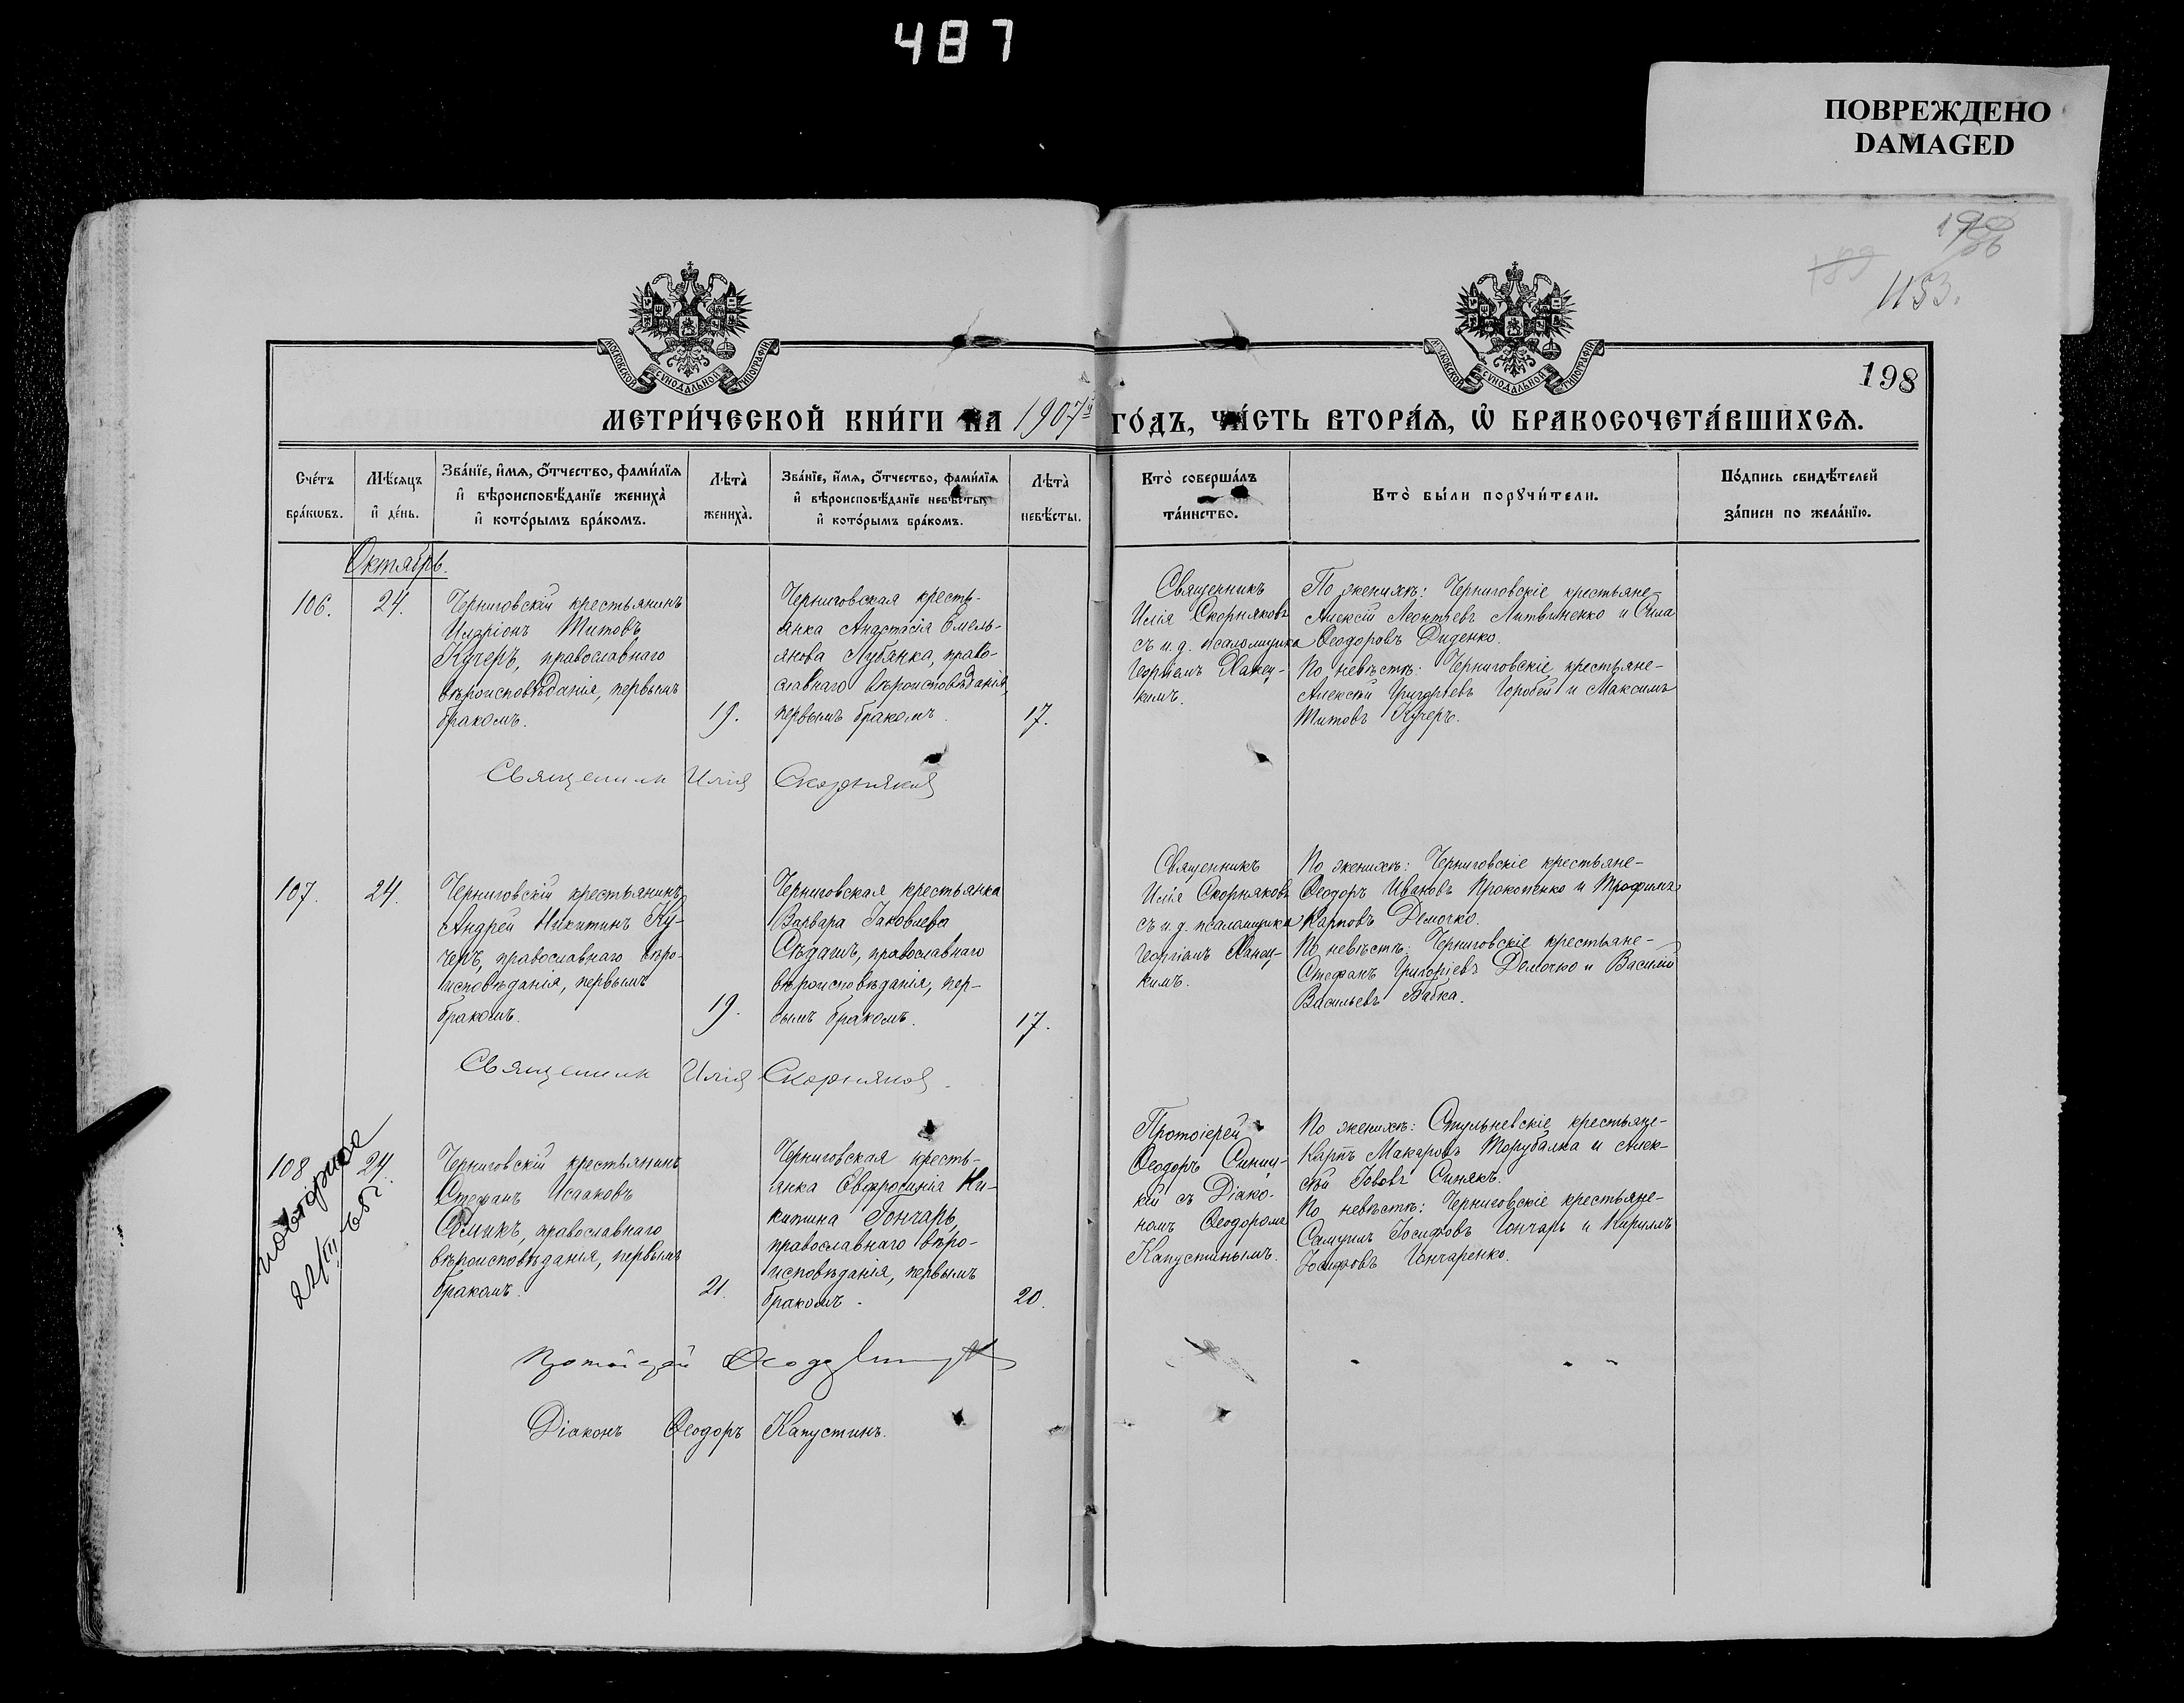 487
ПОВРЕЖДЕНО
DAMAGED
1153.
198
МОСКОВСКОЙ СѴНОДАЛЬНОЙ ТИПОГРАФІИ
МОСКОВСКОЙ СѴНОДАЛЬНОЙ ТИПОГРАФІИ
МЕТРИ́ЧЕСКОЙ КНИ́ГИ НА 1907й ГО́ДЪ, ЧА́СТЬ ВТОРА́Я, Ѡ БРАКОСОЧЕТА́ВШИХСѦ.
Сче́тъ
бра́кѡвъ.
Мѣ́сяцъ
и҆ де́нь.
Зва́нїе, и҆́мѧ, ѻ҆́тчество, фами́лїѧ
и҆ вѣроисповѣ́данїе жениха̀
и҆ кото́рымъ бра́комъ.
Лѣта̀
жениха̀.
Зва́нїе, и҆́мѧ, ѻ҆́тчество, фами́лїѧ
и҆ вѣроисповѣ́данїе невѣ́сты,
и҆ кото́рымъ бра́комъ.
Лѣта̀
невѣ́сты.
Кто̀ соверша́лъ
та́инство.
Кто̀ бы́ли порꙋчи́тели.
По́дпись свидѣ́телей
за́писи по жела́нїю.
Октябрь.
106.
24.
Черниговскій крестьянинъ
Иларіонъ Титовъ
Кучеръ, православнаго
вѣроисповѣданія, первымъ
бракомъ.
19.
Черниговская кресть-
янка Анастасія Омель-
янова Лубянка, право-
славнаго вѣроисповѣданія,
первымъ бракомъ.
17.
Священникъ
Илія Скорняковъ
съ и.д. псаломщика
Георгіемъ
кимъ.
По женихѣ: Черниговскіе крестьяне-
Алексій Леонтьевъ Литвиненко и Сила
Ѳеодоровъ Диденко.
По невѣстѣ: Черниговскіе крестьяне-
Алексій Григорьевъ Горобей и Максимъ
Титовъ Кучеръ.
Священникъ Илія Скорняковъ
107.
24.
Черниговскій крестьянинъ
Андрей Никитинъ Ку-
черъ, православнаго вѣро-
исповѣданія, первымъ
бракомъ.
19.
Черниговская крестьянка
Варвара Іаковлева
Сѣдашъ, православнаго
вѣроисповѣданія, пер-
вымъ бракомъ.
17.
Священникъ
Илія Скорняковъ
съ и.д. псаломщика
Георгіемъ
кимъ.
По женихѣ: Черниговскіе крестьяне-
Ѳеодоръ Ивановъ Прокопенко и Трофимъ
Карповъ Демочко.
По невѣстѣ: Черниговскіе крестьяне-
Стефанъ Григоріевъ Демочко и Василій
Васильевъ Бабка.
Священникъ Илія Скорняковъ.
108
24.
повторное
Черниговскій крестьянинъ
Стефанъ Исааковъ
православнаго
вѣроисповѣданія, первымъ
бракомъ.
21.
Черниговская кресть-
янка Евфросинія Ни-
китина Гончаръ,
православнаго вѣро-
исповѣданія, первымъ
бракомъ.
20.
Протоіерей
Ѳеодоръ Синиц-
кій съ Діако-
номъ Ѳеодоромъ
Капустинымъ.
По женихѣ: Стульневскіе крестьяне-
Карпъ Макаровъ Торубалка и Алек-
сѣй Іововъ Синякъ.
По невѣстѣ: Черниговскіе крестьяне-
Самуилъ Іосифовъ Гончаръ и Кириллъ
Іосифовъ Гончаренко.
Протоіерей Ѳеодоръ
Діаконъ Ѳеодоръ Капустинъ.